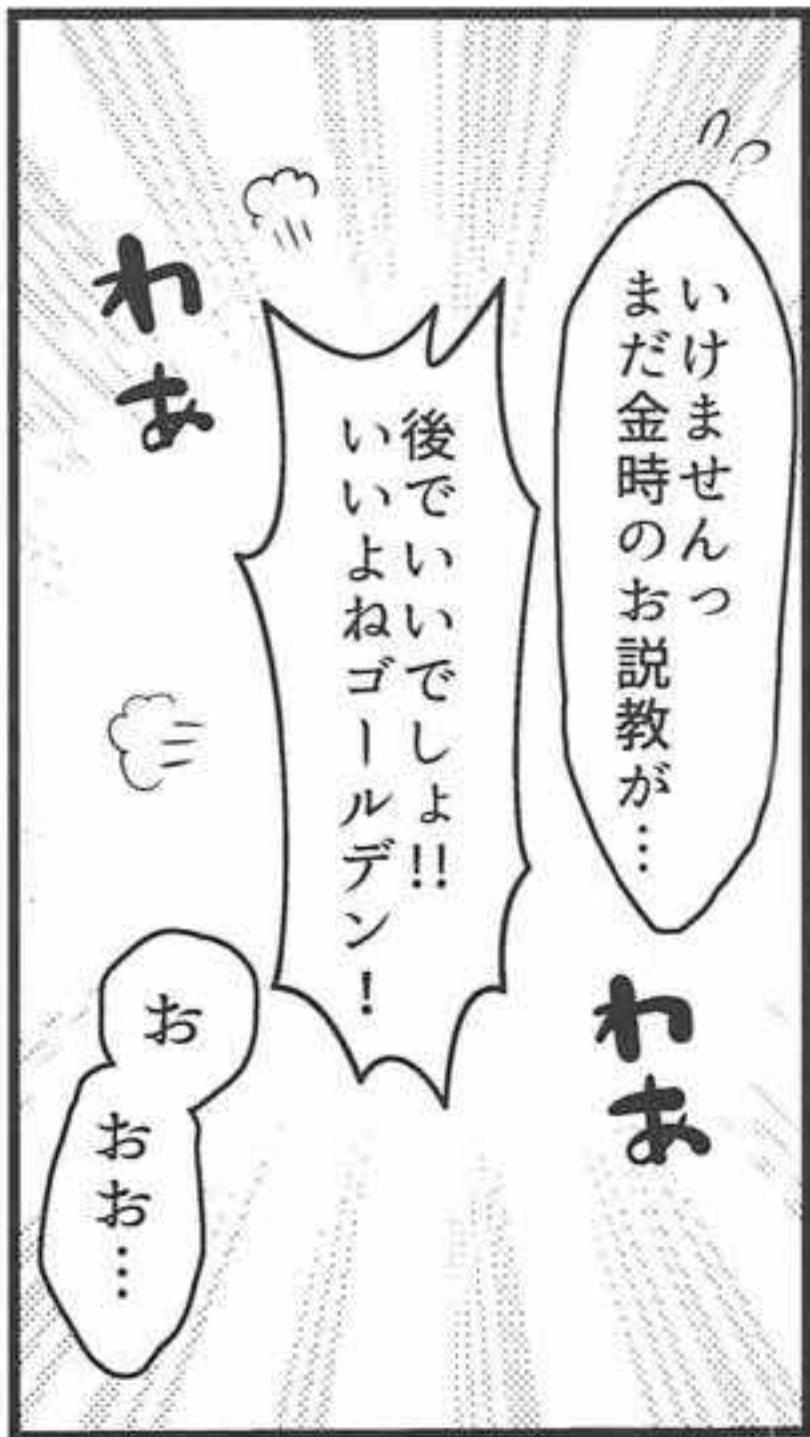 いけませんっ
まだ金時のお説教が…
後でいいでしょ!!
いいよねゴールデン！
わぁ
わぁ
お
おお…